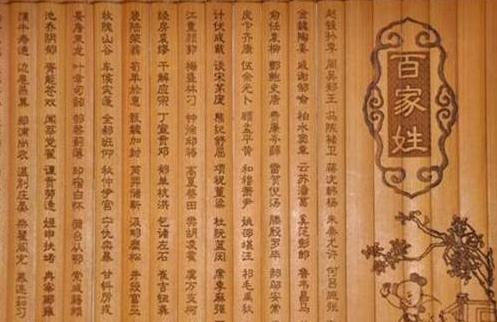 百家姓
赵钱孙李 周吴郑王 冯陈褚卫 蒋沈韩杨 朱秦尤许 何吕施张
金魏陶姜 戚谢邹喻 柏水窦章 云苏潘葛 奚范彭郎 鲁韦昌马
俞任袁柳 酆鲍史唐 费廉岑薛 雷贺倪汤 滕殷罗毕 郝邬安常
皮卞齐康 伍余元卜 顾孟平黄 和穆萧尹 姚邵湛汪 祁毛禹狄
计伏成戴 谈宋茅庞 熊纪舒屈 项祝董梁 杜阮蓝闵 席季麻强
江童颜郭 梅盛林刁 钟徐邱骆 高夏蔡田 樊胡凌霍 虞万支柯
经房裘缪 干解应宗 丁宣贲邓 郁单杭洪 包诸左石 崔吉钮龚
裴陆荣翁 荀羊於惠 甄麴加封 芮羿储靳 汲邴糜松 井段富巫
牧隗山谷 车侯宓蓬 全郗班仰 秋仲伊宫 宁仇栾暴 甘钭厉戎
景詹束龙 叶幸司韶 郜黎蓟薄 印宿白怀 蒲邰从鄂 索咸籍赖
池乔阴郁 胥能苍双 闻莘党翟 谭贡劳逄 姬申扶堵 冉宰郦雍
濮牛寿通 边扈燕冀 郏浦尚农 温别庄晏 柴瞿阎充 慕连茹习